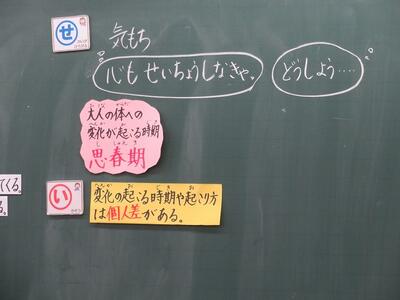 せ
気もち
心も せいちょうしなきゃ。
どうしよう....
大人の体への
変化が起こる時期
思春期
てくる。
る。
い
変化の起こる時期や起こり方
は個人差がある。